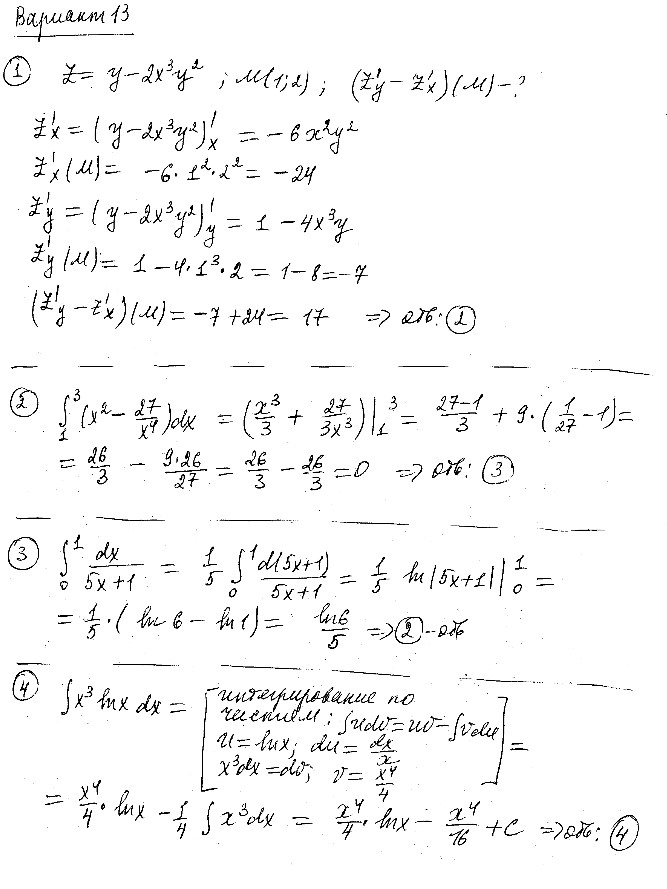 Вариант 13
① z = y − 2x³y² ; M(1;2) ; (z'y − z'x)(M) − ?
z'x = (y − 2x³y²)'x = −6x²y²
z'x(M) = −6·1²·2² = −24
z'y = (y − 2x³y²)'y = 1 − 4x³y
z'y(M) = 1 − 4·1³·2 = 1 − 8 = −7
(z'y − z'x)(M) = −7 + 24 = 17 ⇒ отв: ②
② ∫₁³ (x² − 27/x⁴)dx = (x³/3 + 27/3x³)|₁³ = (27−1)/3 + 9·(1/27 − 1) =
= 26/3 − 9·26/27 = 26/3 − 26/3 = 0 ⇒ отв: ③
③ ∫₀¹ dx/(5x+1) = 1/5 ∫₀¹ d(5x+1)/(5x+1) = 1/5 ln|5x+1||₀¹ =
= 1/5·(ln6 − ln1) = ln6/5 ⇒ ② − отв
④ ∫x³lnx dx = [интегрирование по
частям: ∫udv = uv − ∫vdu
u = lnx; du = dx/x
x³dx = dv; v = x⁴/4] =
= x⁴/4·lnx − 1/4 ∫x³dx = x⁴/4·lnx − x⁴/16 + C ⇒ отв: ④